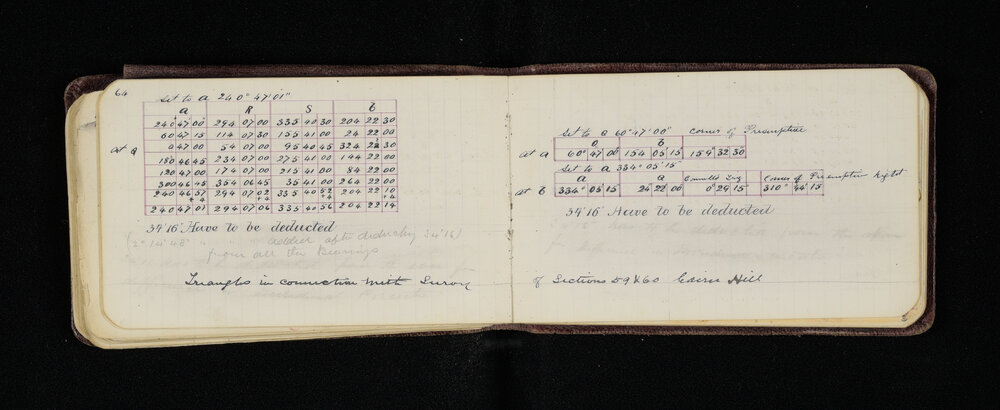 64
Set to a 240° 47' 01"
a R S b
240 47 00 294 07 00 335 40 30 204 22 30
60 47 15 114 07 30 155 41 00 24 22 00
0 47 00 54 07 00 95 40 45 324 22 30
at Q 180 46 45 234 07 00 275 41 00 144 22 00
120 47 00 174 07 00 215 41 00 84 22 00
300 46 45 354 06 45 35 41 00 264 22 00
240 46 57 294 07 02 335 40 52 204 22 10
+4 +4 +4 +4
240 47 01 294 07 06 335 40 56 204 22 14
34' 16" Have to be deducted
(2° 14' 48" " " added after deducting 34' 16")
from all the Bearings
Triangles in connection with Survey
Set to Q 60° 47' 00" corner of Preemptive
Q b
at a 60° 47 00 154 05 15 159° 32 30
Set to a 334° 05' 15"
a Q Connells Trig Corner of Preemption
at b 334° 05 15 24 22 00 0° 29 15 310° 44' 15
34' 16" Have to be deducted
of Sections 59 & 60 Cairn Hill